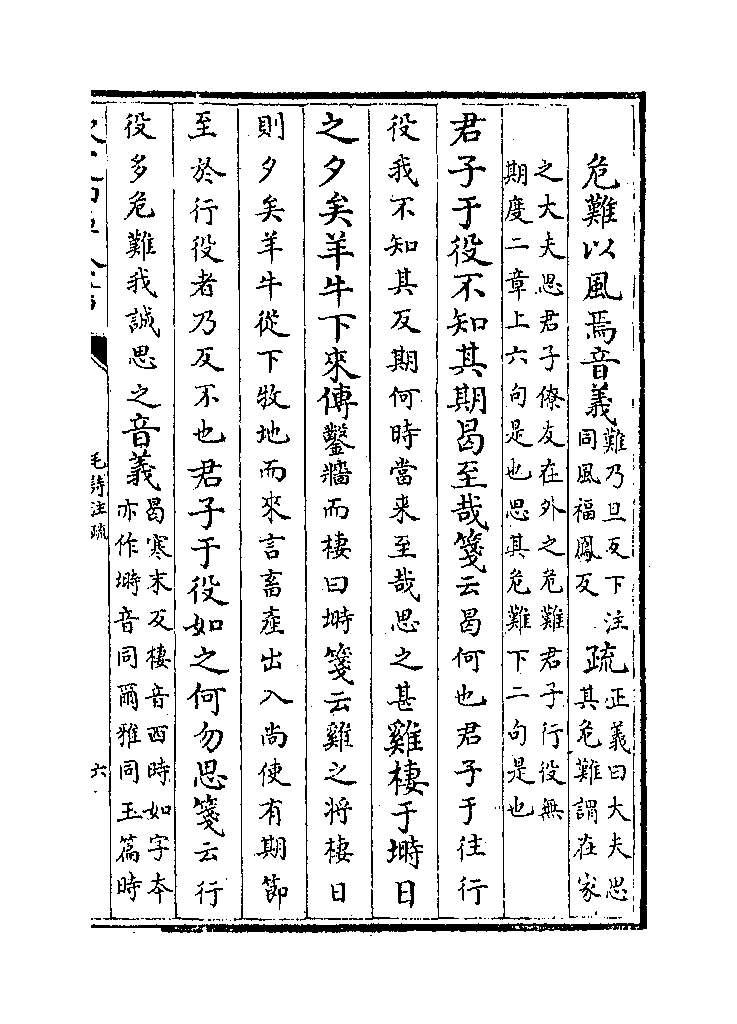 危難以風焉音義難乃旦反下注
同風福鳳反疏正義曰大夫思
其危難謂在家
之大夫思君子僚友在外之危難君子行役無
期度二章上六句是也思其危難下二句是也
君子于役不知其期曷至哉箋云曷何也君子于往行
役我不知其反期何時當來至哉思之甚雞棲于塒日
之夕矣羊牛下來傳鑿牆而棲曰塒箋云雞之將棲日
則夕矣羊牛從下牧地而來言畜產出入尚使有期節
至於行役者乃反不也君子于役如之何勿思箋云行
役多危難我誠思之音義曷寒末反棲音西時如字本
亦作塒音同爾雅同玉篇時
毛詩注疏
六